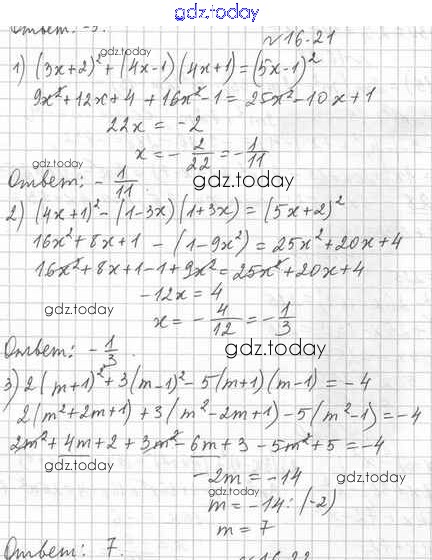 gdz.today
Ответ: -5.
№16.21
1) (3x+2)² + (4x-1)(4x+1) = (5x-1)²
gdz.today
9x² + 12x + 4 + 16x² - 1 = 25x² - 10x + 1
22x = -2
x = - 2/22 = - 1/11
gdz.today
Ответ: - 1/11.
gdz.today
2) (4x+1)² - (1-3x)(1+3x) = (5x+2)²
16x² + 8x + 1 - (1-9x²) = 25x² + 20x + 4
16x² + 8x + 1 - 1 + 9x² = 25x² + 20x + 4
-12x = 4
gdz.today
x = - 4/12 = - 1/3
gdz.today
Ответ: - 1/3.
gdz.today
3) 2(m+1)² + 3(m-1)² - 5(m+1)(m-1) = -4
2(m²+2m+1) + 3(m²-2m+1) - 5(m²-1) = -4
2m² + 4m + 2 + 3m² - 6m + 3 - 5m² + 5 = -4
gdz.today
-2m = -14
gdz.today
m = -14 : (-2)
gdz.today
m = 7
Ответ: 7.
№16.22